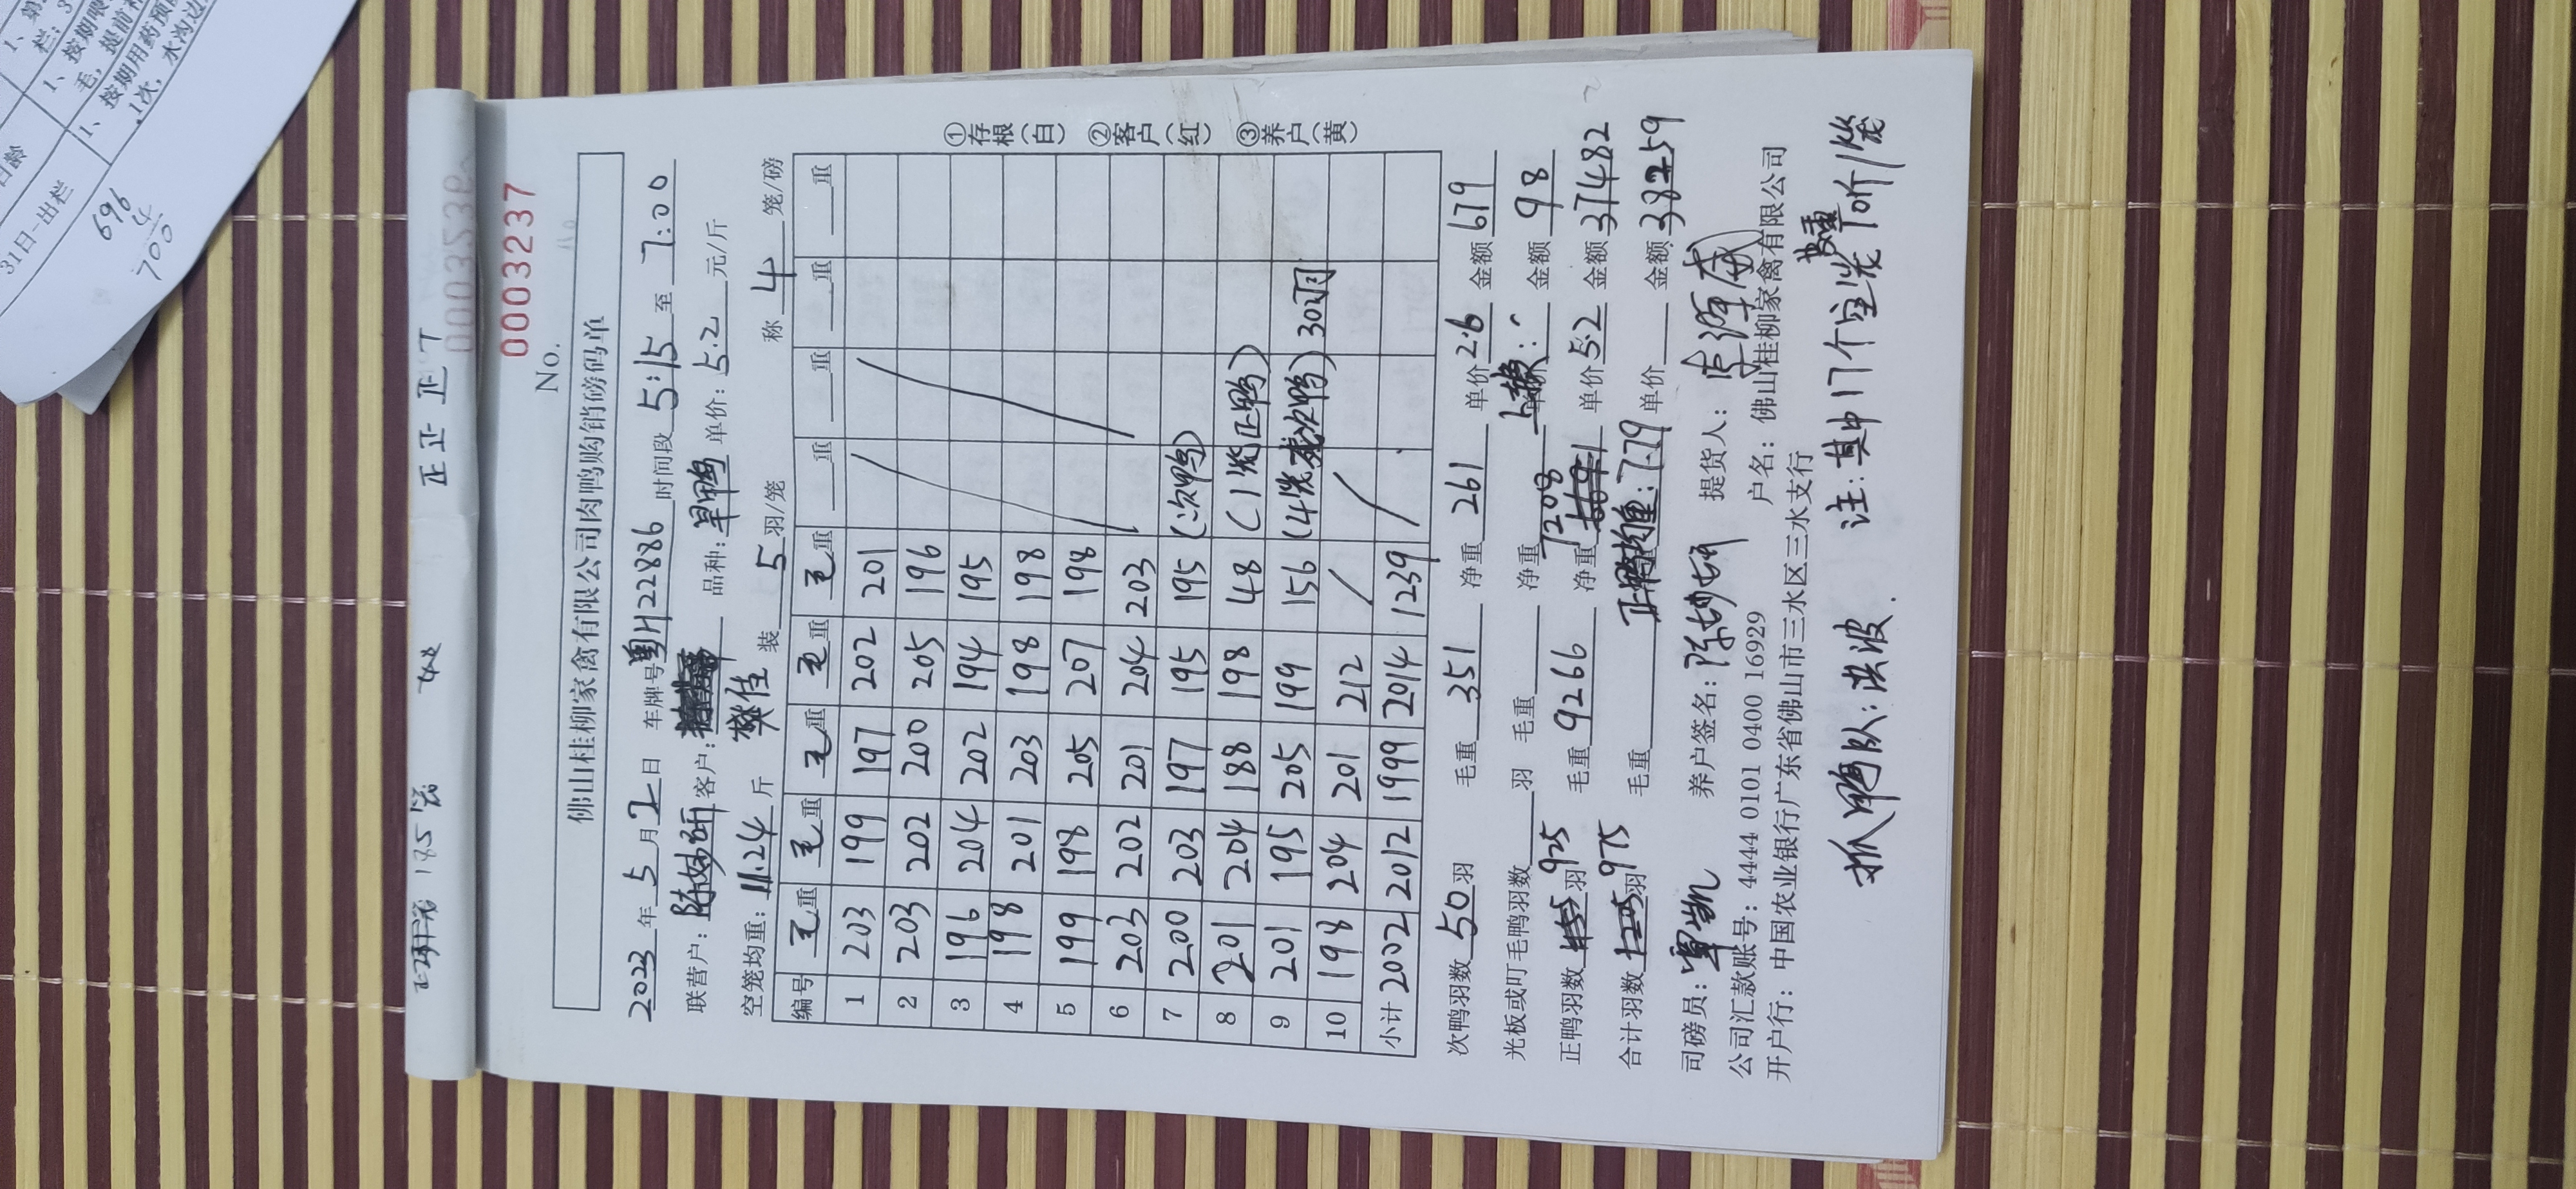 31日-出栏
696
4
700
1、按期喂
毛,提前
1、按期用药预
1次,水沟边
185
正 正 正 T
No. 0003237
佛山桂柳家禽有限公司肉鸭购销磅码单
2023 年 5 月 2 日 车牌号 22886 时间段 5:15 至 7:00
联营户: 客户: 品种: 旱鸭 单价: 5.2 元/斤
空笼均重: 11.24 斤 装 5 羽/笼 称 4 笼/磅
编号 毛重 毛重 毛重 毛重 毛重 重 重 重 重
1 203 199 197 202 201
2 203 202 200 205 196
3 196 204 202 194 195
4 198 201 203 198 198
5 199 198 205 207 198
6 203 202 201 204 203
7 200 203 197 195 195 (次鸭)
8 201 204 188 198 48 (1笼正鸭)
9 201 195 205 199 156 (4笼次鸭) 30羽
10 198 204 201 212
小计 2002 2012 1999 2014 1239
①存根(白) ②客户(红) ③养户(黄)
次鸭羽数 50 羽 毛重 351 净重 261 单价 2.6 金额 679
光板或叮毛鸭羽数 羽 毛重 净重 单价 金额 98
正鸭羽数 925 羽 毛重 9266 净重 7208 单价 5.2 金额 37482
合计羽数 975 羽 毛重 正鸭均重: 7.79 单价 金额 38259
司磅员: 养户签名: 提货人:
公司汇款账号: 4444 0101 0400 16929 户名: 佛山桂柳家禽有限公司
开户行: 中国农业银行广东省佛山市三水区三水支行
抓鸭队: 洪波. 注: 其中17个空笼